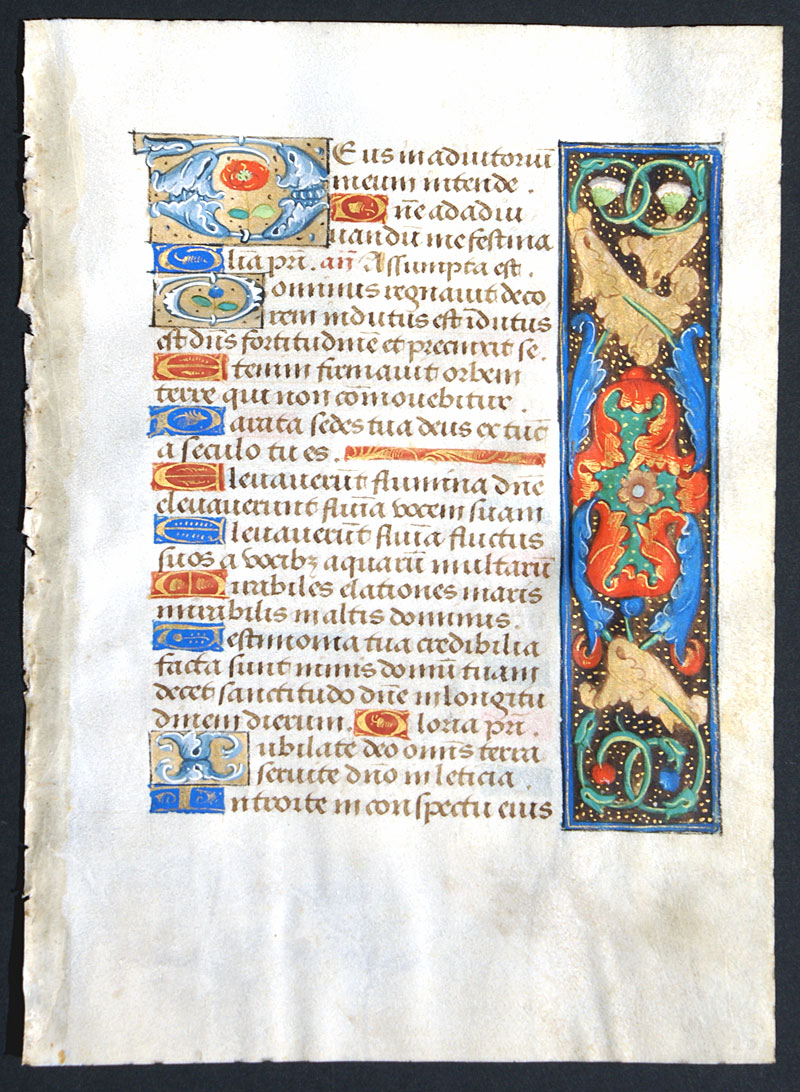 DEus in adiutoriū
meum intende .
Dñe ad adiu
uandū me festina
Glia pr̄i . añ Assumpta est .
Dominus regnauit deco
rem indutus est īdutus
est dn̄s fortitudinē et precinxit se .
Etenim firmauit orbem
terre qui non cōmouebitur .
Parata sedes tua deus ex tūc
a seculo tu es .
Eleuauerūt flumina dn̄e
eleuauerunt flūīa vocem suam
Eleuauerūt flūīa fluctus
suos a vocibꝫ aquarū multarū
Mirabiles elationes maris
mirabilis in altis dominus .
Testimonia tua credibilia
facta sunt nimis domū tuam
decet sanctitudo dn̄e in longitu
dinem dierum . Gloria pr̄i .
Iubilate deo omīs terra
seruite dn̄o in leticia .
Introite in conspectu eius